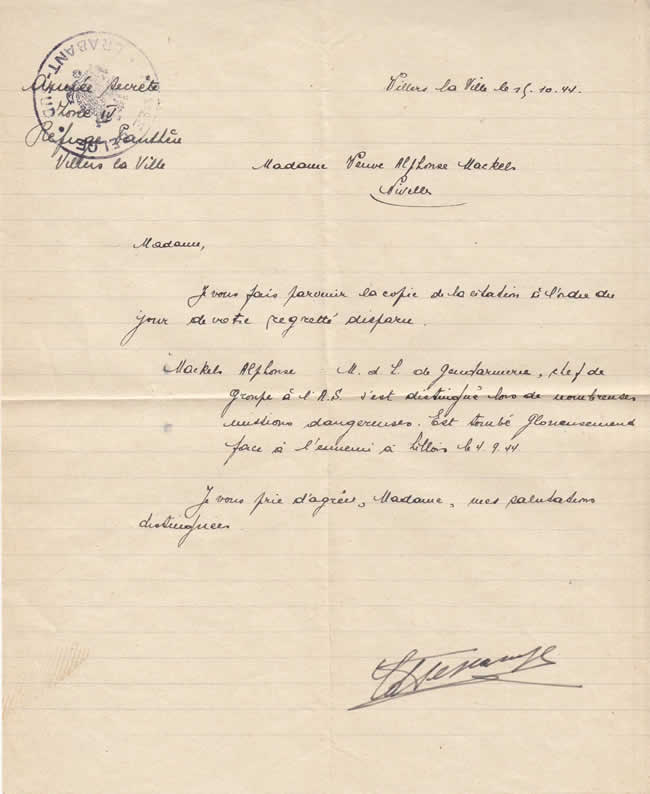 BRABANT-SUD
Armée Secrète
Zone IV
Refuge Panthère
Villers la Ville
Villers la Ville le 15.10.44.
Madame Veuve Alphonse Mackels
Nivelles
Madame,
Je vous fais parvenir la copie de la citation à l'ordre du
jour de votre regretté disparu.
Mackels Alphonse M. d L. de Gendarmerie, chef de
Groupe à l'A.S. s'est distingué lors de nombreuses
missions dangereuses. Est tombé Glorieusement
face à l'ennemi à Lillois le 4.9.44
Je vous prie d'agréer, Madame, mes salutations
distinguées.